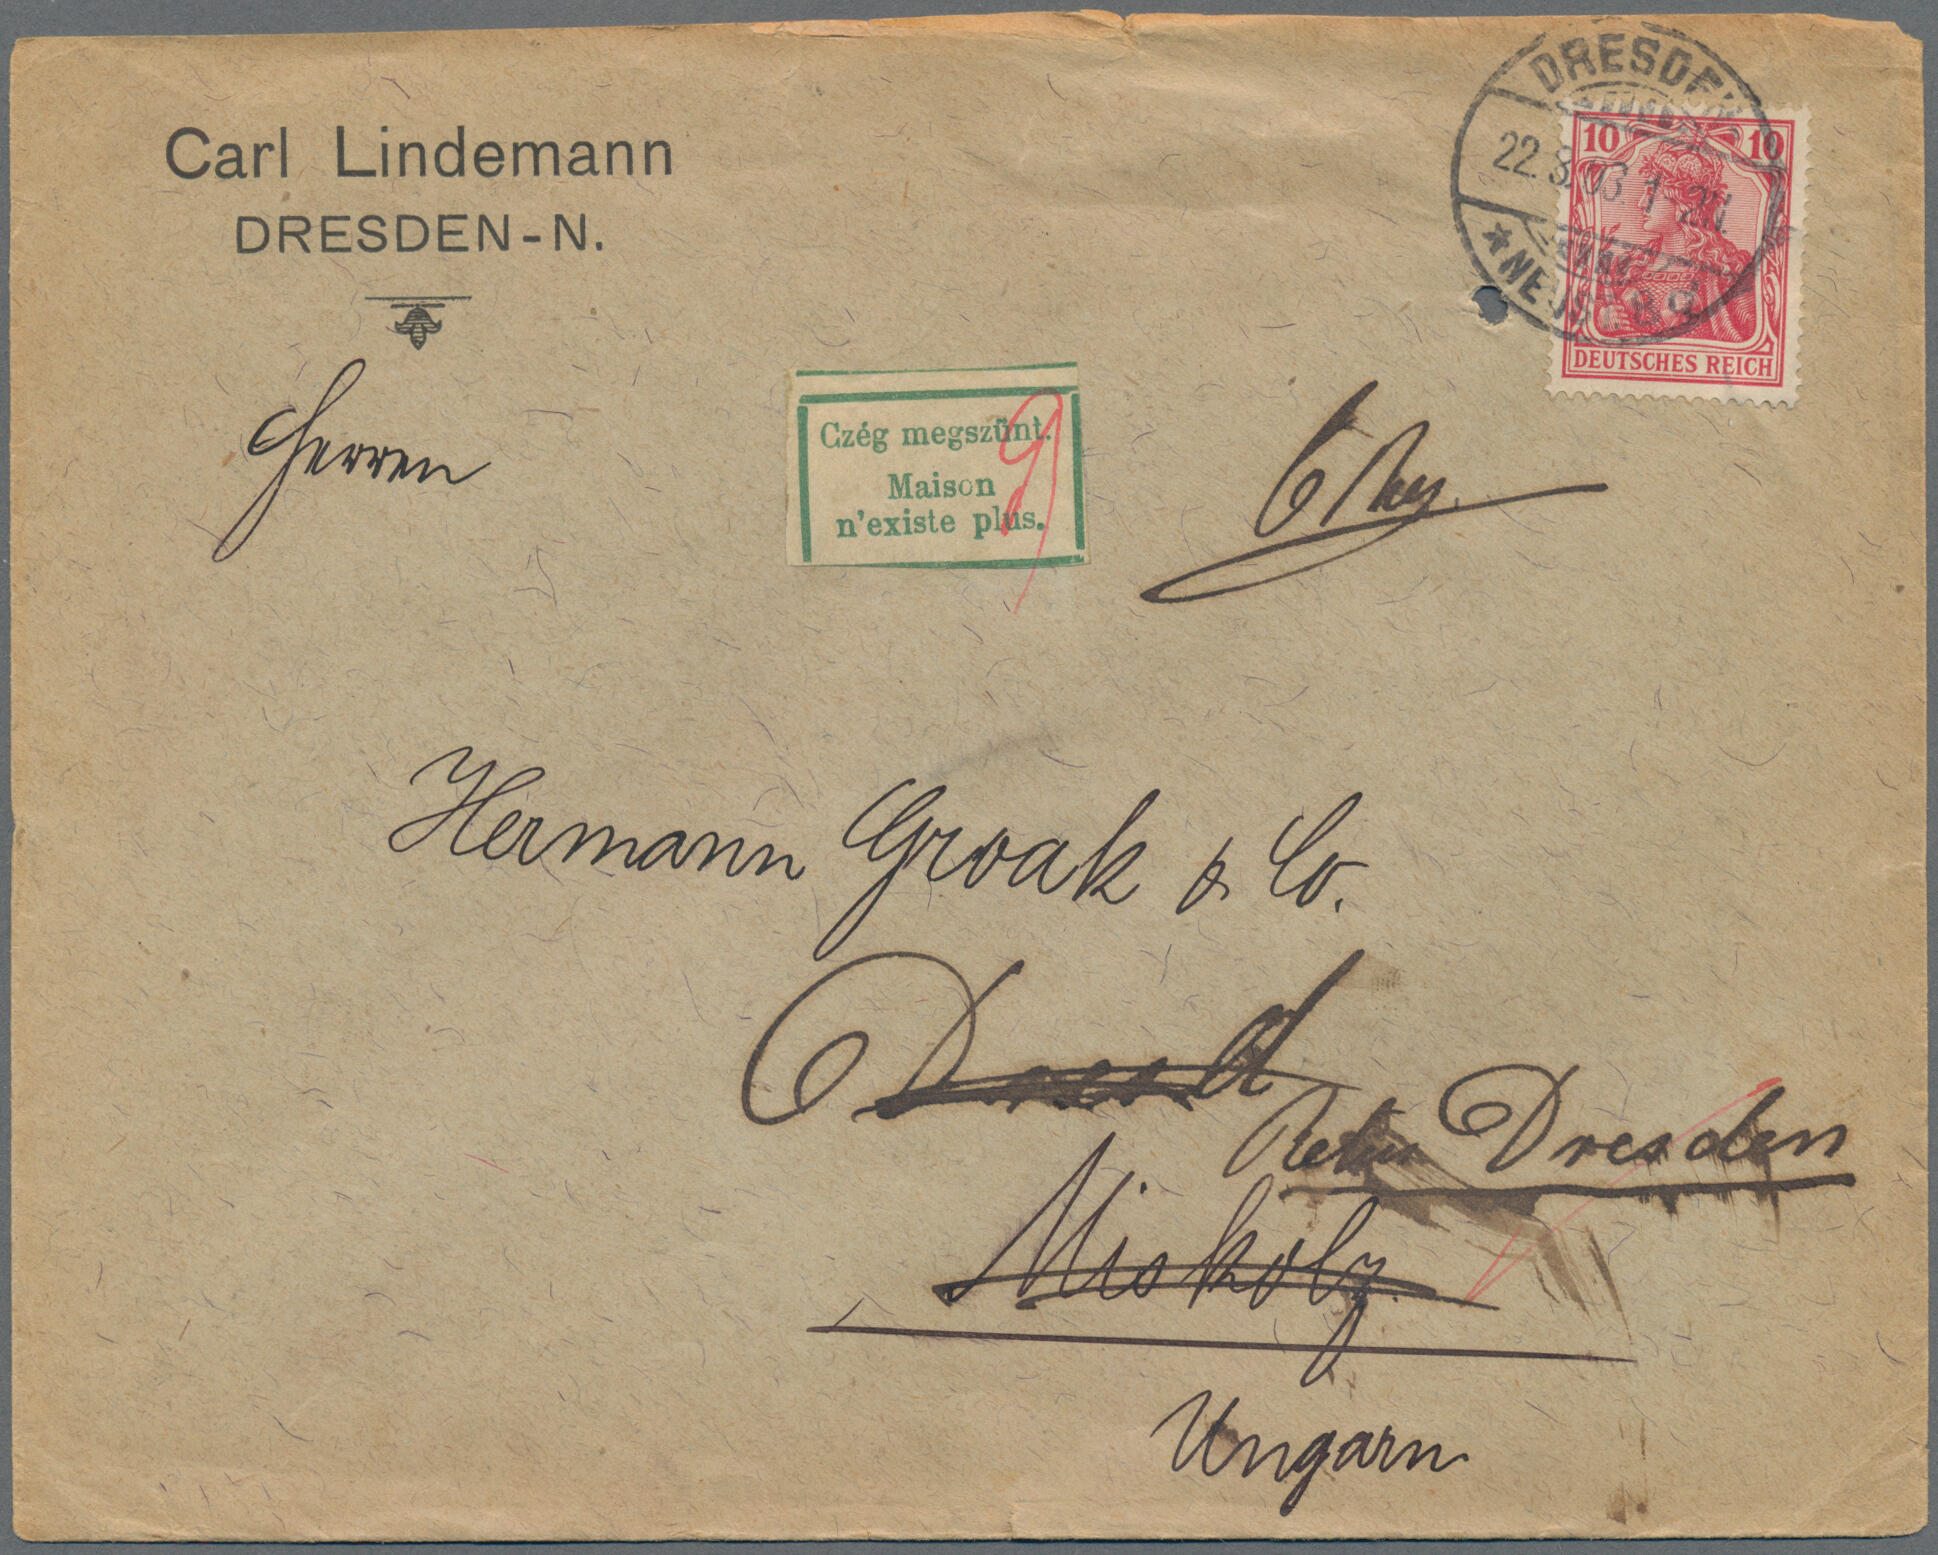 Carl Lindemann
DRESDEN-N.
DRESDEN
22.8.03 1-2N.
* NEUST. 8 g
10 10
DEUTSCHES REICH
Herren
Czég megszünt.
Maison
n'existe plus.
Hermann Groak & Co.
Retur Dresden
Miskolz.
Ungarn